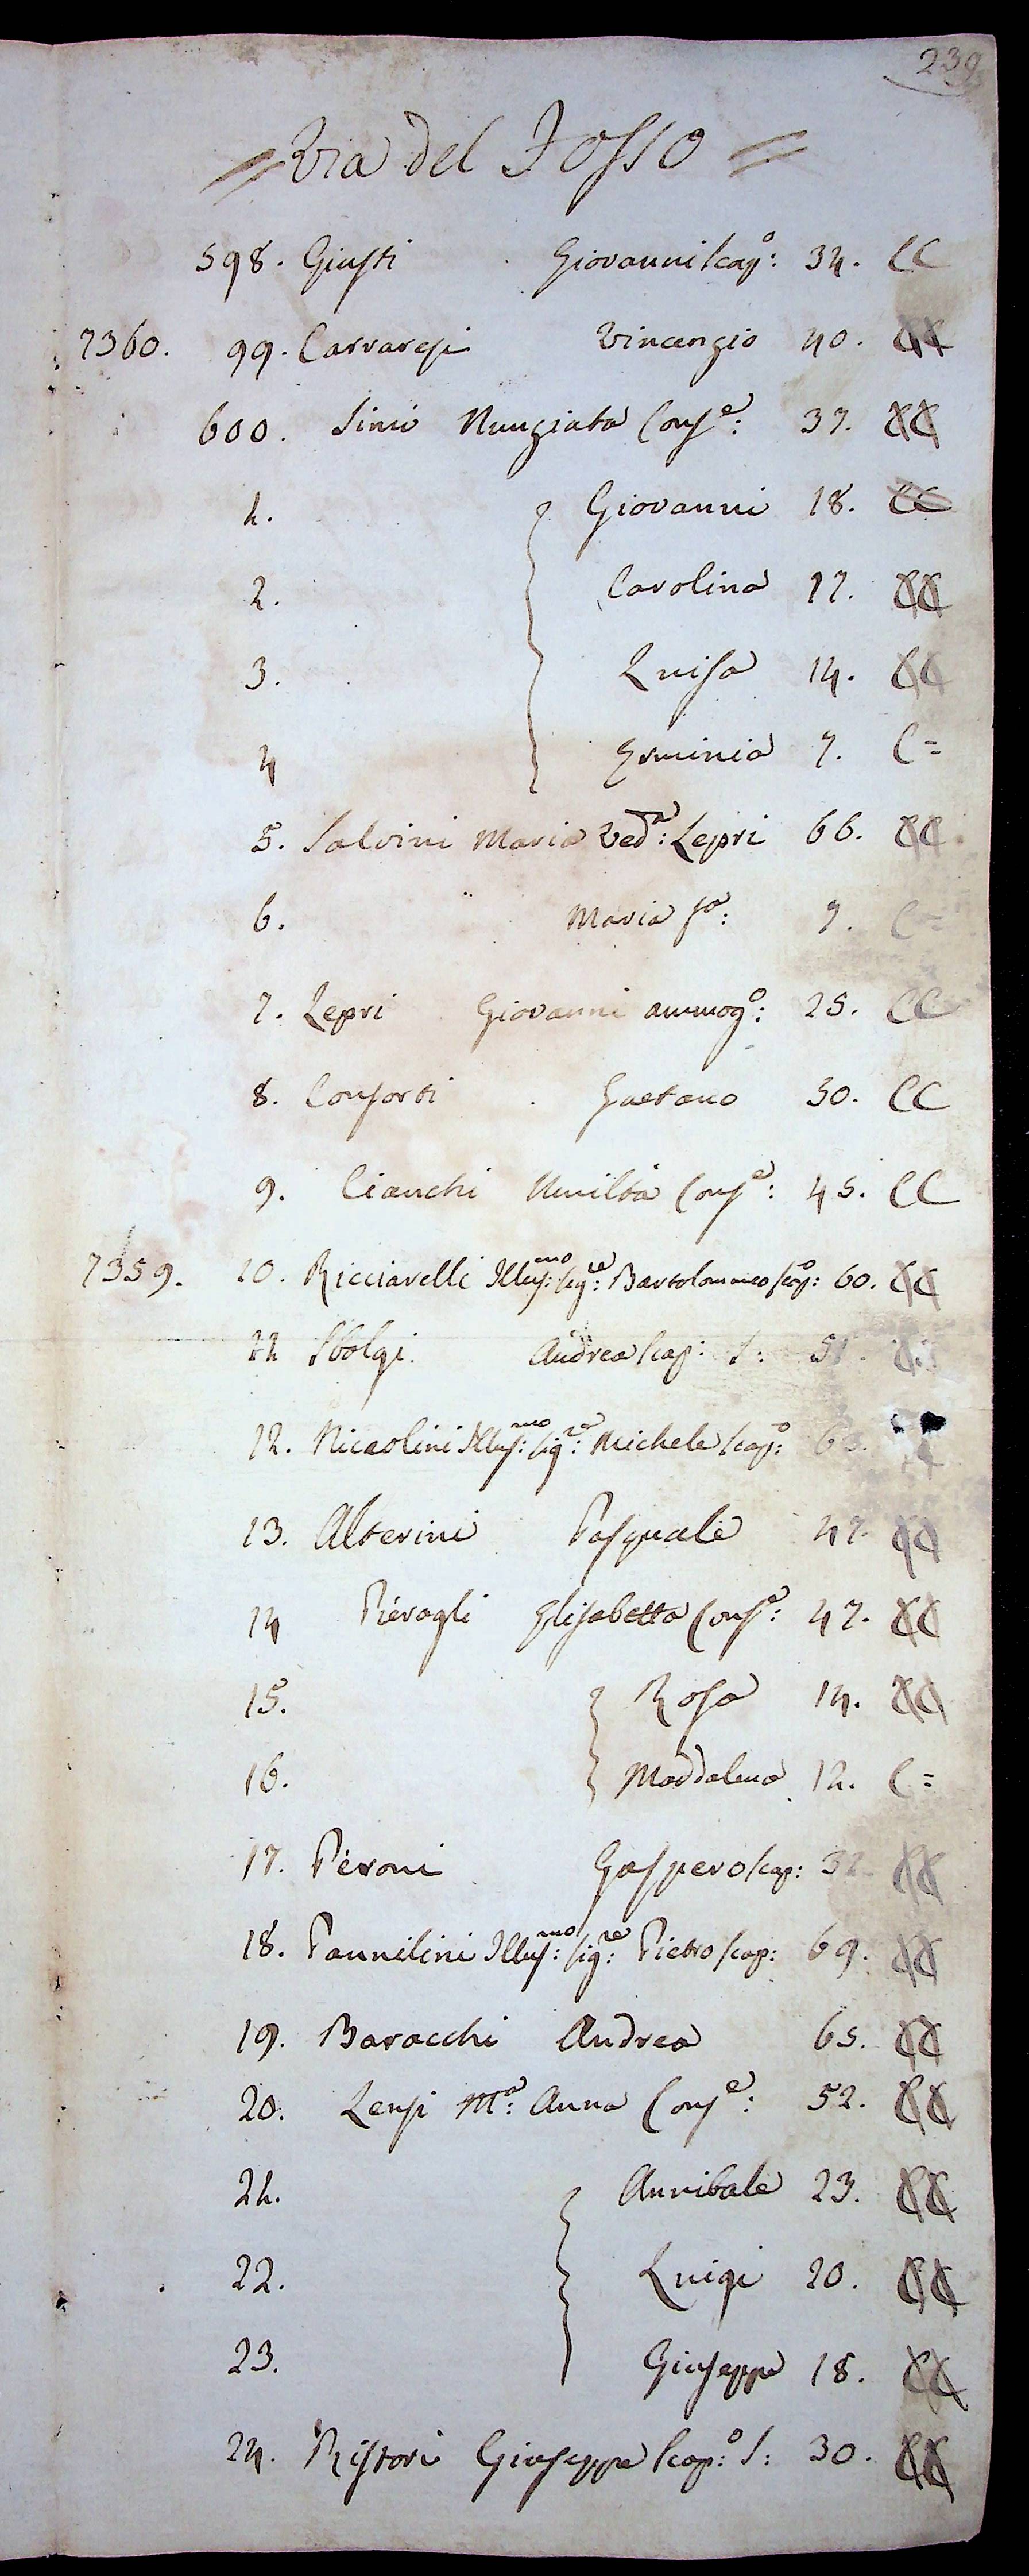 239
= Via del Fosso =
598. Giusti Giovanni scap:o 34. CC
7360. 99. Carraresi Vincenzio 40. CC
600. Simi Nunziata Cons:e 37. CC
1. Giovanni 18. CC
2. Carolina 17. CC
3. Luisa 14. CC
4 Erminia 7. C=
5. Salvini Maria Ved:a Lepri 66. CC
6. Maria fa: 9. C=
7. Lepri Giovanni ammog:o 25. CC
8. Conforti Gaetano 30. CC
9. Cianchi Umiltà Cons:e 45. CC
7359. 10. Ricciarelli Illus:mo sig:re Bartolommeo scap:o 60. CC
11 Sbolgi Andrea scap: S: CC
12. Niccolini Illus:mo sig:re Michele scap:o
13. Alterini Pasquale 47. CC
14 Pieragli Elisabetta Cons:e 47. CC
15. Rosa 14. CC
16. Maddalena 12. C=
17. Peroni Gaspero scap: 32. CC
18. Pannilini Illus:mo sig:re Pietro scap: 69. CC
19. Baracchi Andrea 65. CC
20. Lensi M:a Anna Cons:e 52. CC
21. Annibale 23. CC
22. Luigi 20. CC
23. Giuseppe 18. CC
24. Ristori Giuseppe scap:o S: 30. CC